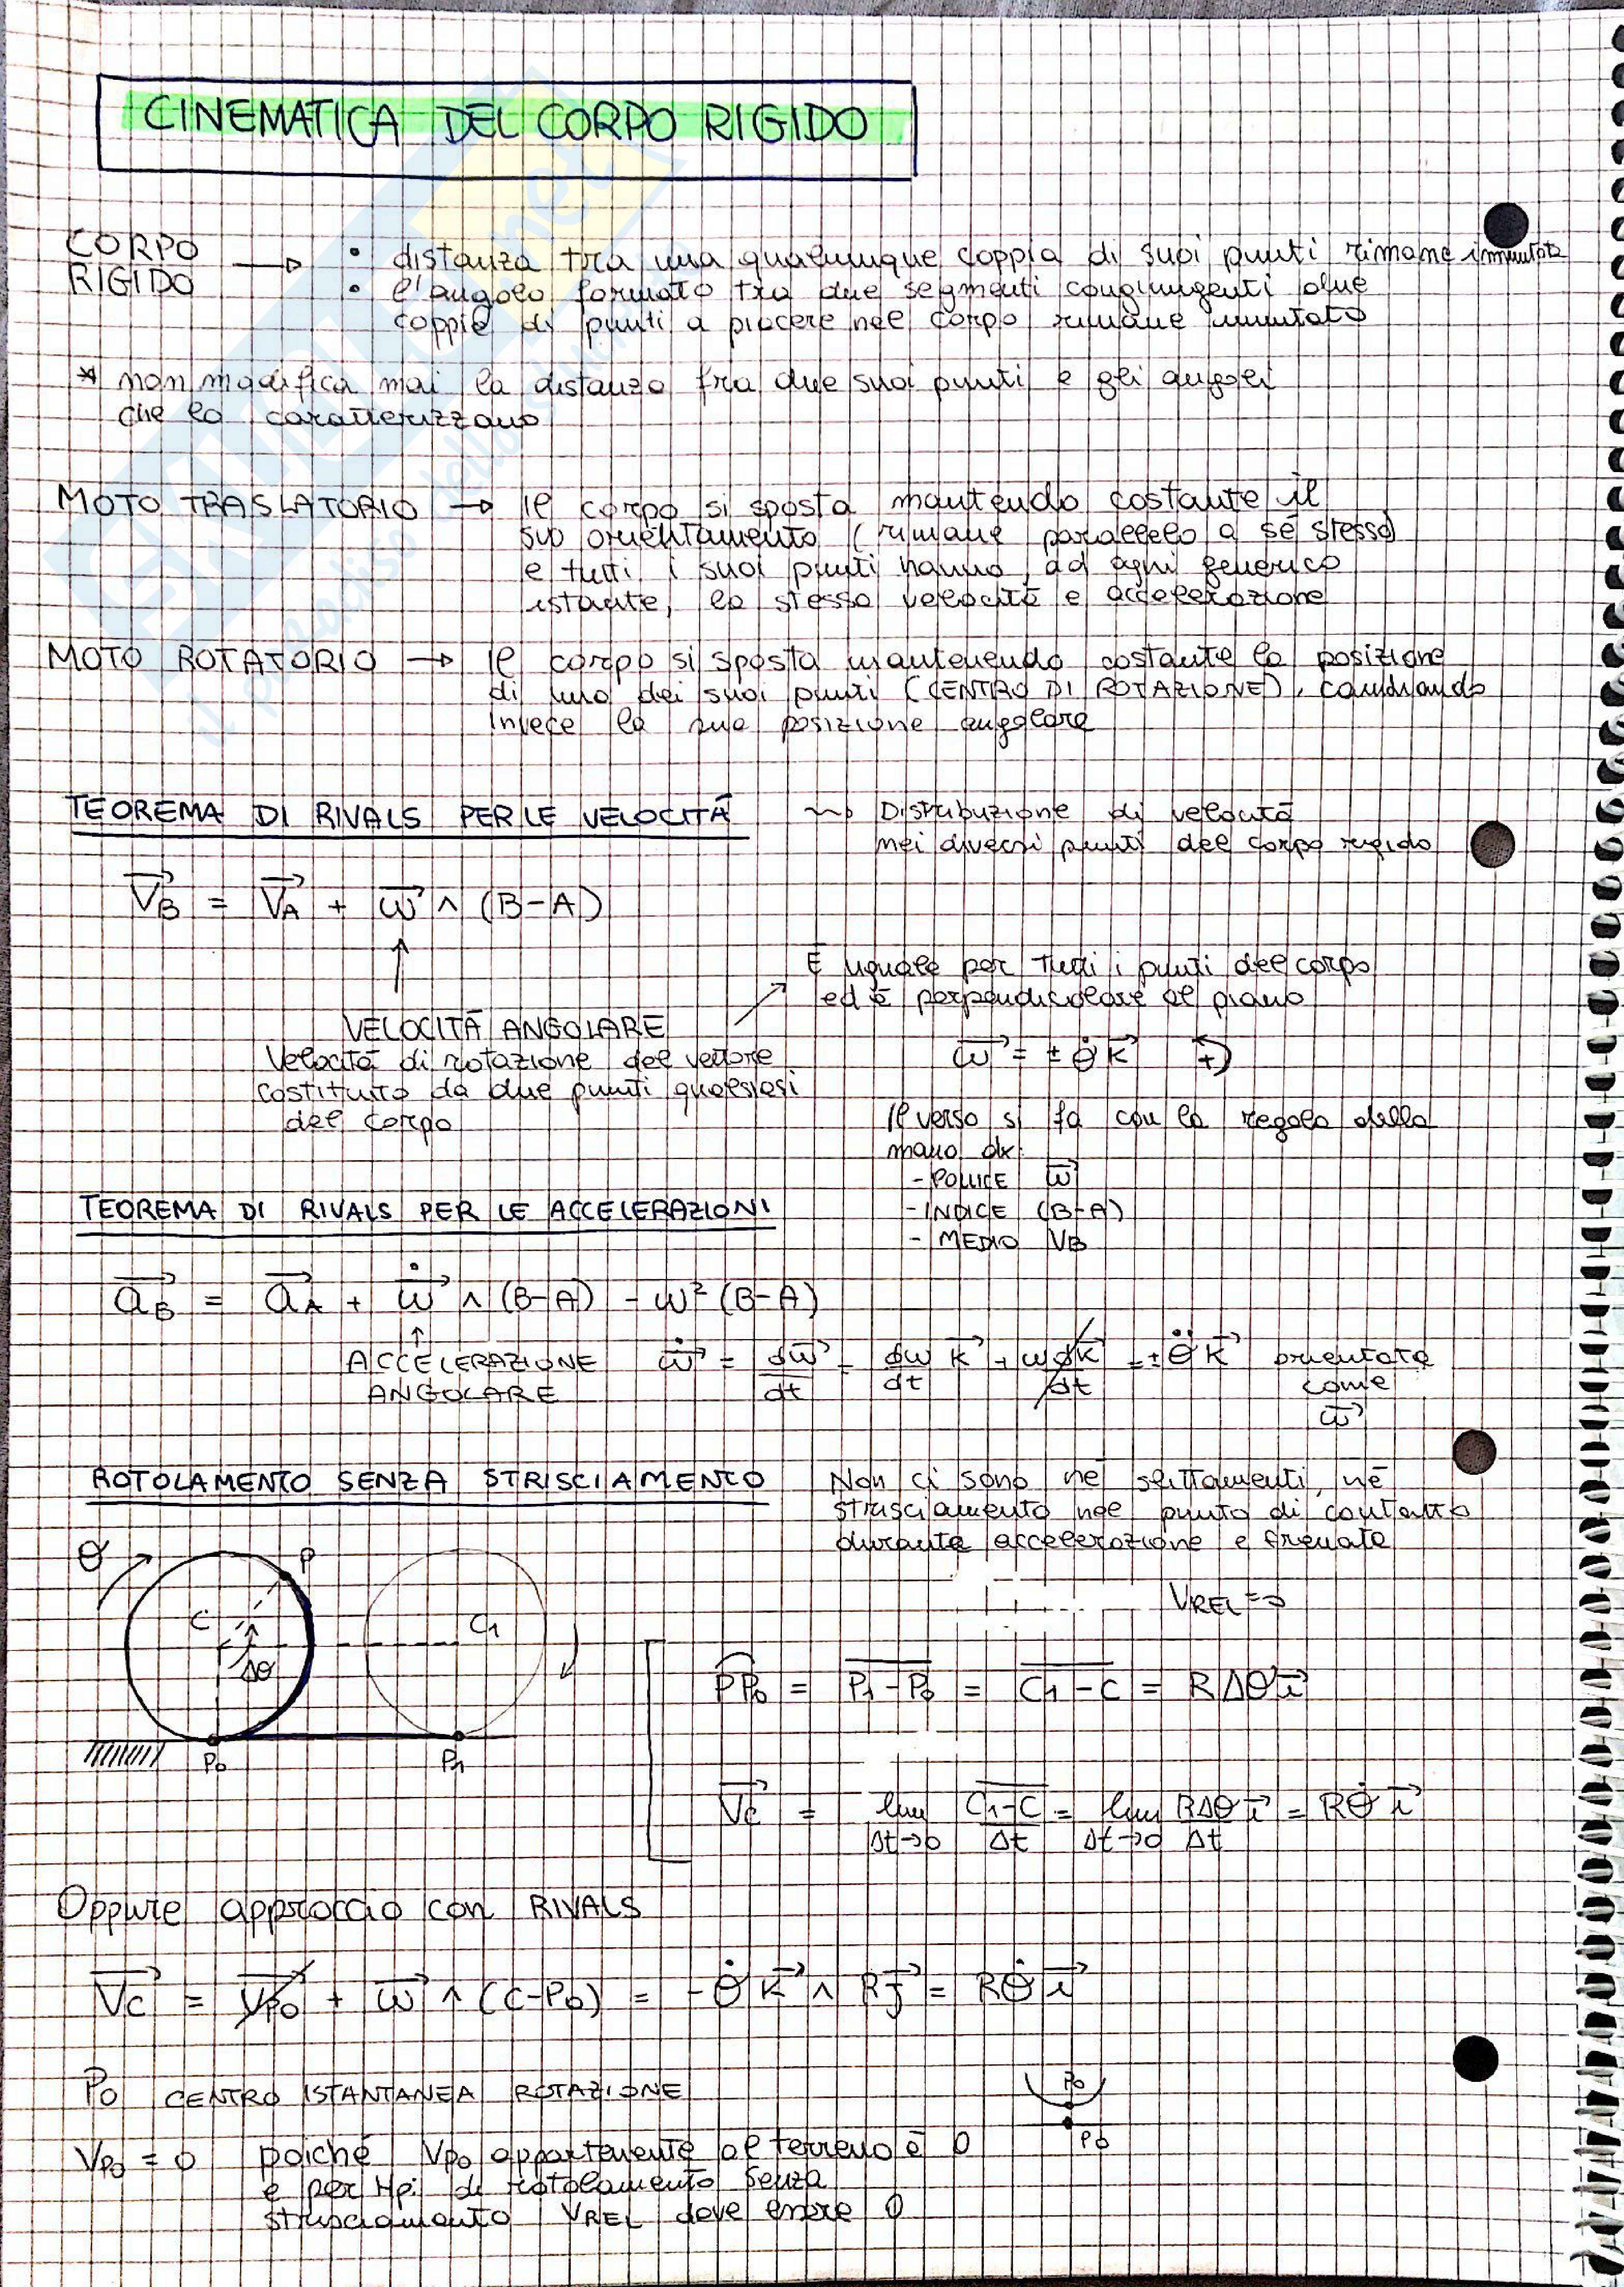 CINEMATICA DEL CORPO RIGIDO
CORPO RIGIDO → • distanza tra una qualunque coppia di suoi punti rimane immutata
• l'angolo formato tra due segmenti congiungenti due
coppie di punti a piacere nel corpo rimane immutato
* non modifica mai la distanza fra due suoi punti e gli angoli
che lo caratterizzano
MOTO TRASLATORIO → il corpo si sposta mantendo costante il
suo orientamento (rimane parallelo a sé stesso)
e tutti i suoi punti hanno, ad ogni generico
istante, la stessa velocità e accelerazione
MOTO ROTATORIO → il corpo si sposta mantenendo costante la posizione
di uno dei suoi punti (CENTRO DI ROTAZIONE), cambiando
invece la sua posizione angolare
TEOREMA DI RIVALS PER LE VELOCITÀ ⇝ Distribuzione di velocità
nei diversi punti del corpo rigido
V⃗B = V⃗A + ω⃗ ∧ (B-A)
↑
È uguale per tutti i punti del corpo
ed è perpendicolare al piano
VELOCITÀ ANGOLARE
Velocità di rotazione del vettore
costituito da due punti qualsiasi
del corpo
ω⃗ = ± θ̇ k⃗ +
Il verso si fa con la regola della
mano dx:
- POLLICE ω⃗
- INDICE (B-A)
- MEDIO VB
TEOREMA DI RIVALS PER LE ACCELERAZIONI
a⃗B = a⃗A + ω̇⃗ ∧ (B-A) - ω² (B-A)
↑
ACCELERAZIONE
ANGOLARE
ω̇⃗ = dω⃗/dt = dω/dt k⃗ + ω dk⃗/dt = ± θ̈ k⃗ orientata
come
ω⃗
ROTOLAMENTO SENZA STRISCIAMENTO Non ci sono né slittamenti, né
strisciamento nel punto di contatto
durante accelerazione e frenata
VREL = 0
θ P
C C1
Δθ
P0 P1
PP0 = P1 - P0 = C1 - C = RΔθ i⃗
V⃗C = lim Δt→0 C1-C/Δt = lim Δt→0 RΔθ i⃗/Δt = Rθ̇ i⃗
Oppure approccio con RIVALS
V⃗C = V⃗P0 + ω⃗ ∧ (C-P0) = -θ̇ k⃗ ∧ R j⃗ = Rθ̇ i⃗
P0 CENTRO ISTANTANEA ROTAZIONE
P0
P0
VP0 = 0 poiché VP0 appartenente al terreno è 0
e per Hpi di rotolamento senza
strisciamento VREL deve essere 0